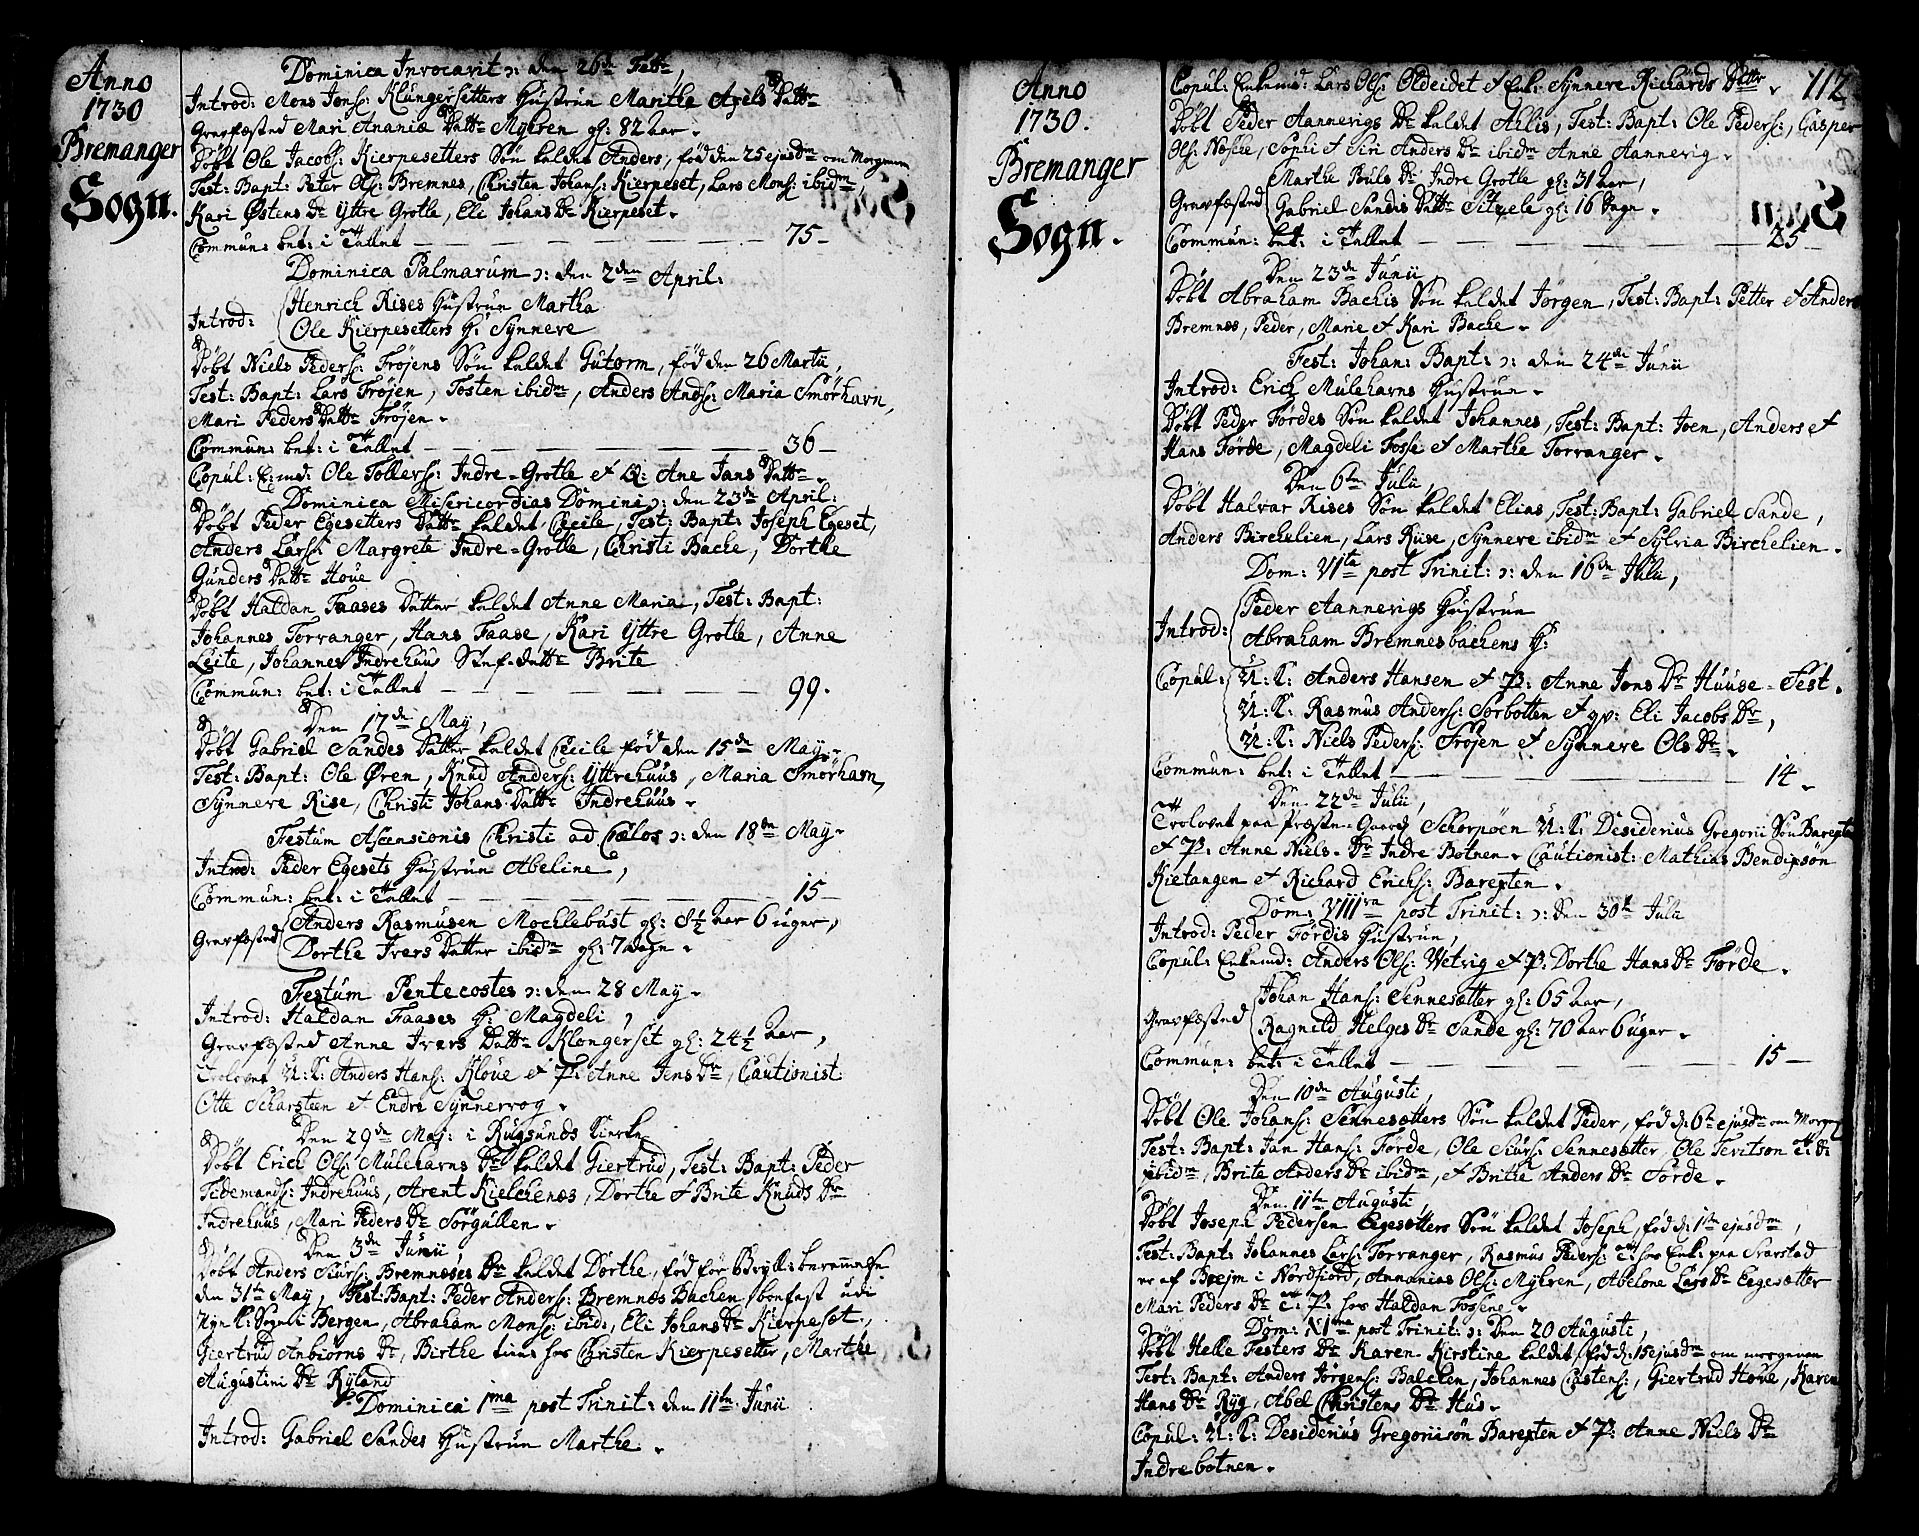 Anno
1730
Bremanger
Sogn.
Dominica Invocavit ɔ: den 26de Febr,
Introd: Mons Jonss: Klungersetters Hustrue Marithe Axels Dattr
Gravfæsted Mari Ananiæ Dattr Myhren gl: 82 aar.
Døbt Ole Jacobs: Kierpesetters Søn kaldet Anders, fød den 25 ejusdm om Morgenen
Test: Bapt: Peter Ols: Bremnes, Christen Johans: Kierpeset, Lars Mons: ibidm,
Kari Østens Dr Yttre Grotle, Eli Johans Dr Kierpeset.
Commun: bet: i Tallet 75
Dominica Palmarum ɔ: den 2den April:
Introd: Henrich Rises Hustrue Martha
Ole Kierpesetters H: Synneve
Døbt Niels Peders: Frøjens Søn kaldet Gutorm, fød den 26 Martii,
Test: Bapt: Lars Frøjen, Tosten ibidm, Anders Ands: Maria Smørhavn,
Mari Peders Dattr Frøjen.
Commun: bet: i Tallet 36
Copul: E:md: Ole Tollers: Indre-Grotle et Q: Ane Jans Dattr.
Dominica Misericordias Domini ɔ: den 23de April:
Døbt Peder Egesetters Dattr kaldet Cecile, Test: Bapt: Joseph Egeset,
Anders Lars: Margrete Indre-Grotle, Christi Bache, Dorthe
Gunders Dattr Houe
Døbt Haldan Faases Datter kaldet Anne Maria, Test: Bapt:
Johannes Torranger, Hans Faase, Kari Yttre Grotle, Anne
Leite, Johannes Indrehuus Stif-dattr Brite
Commun: bet: i Tallet 99.
Den 17de May,
Døbt Gabriel Sandes Datter kaldet Cecile fød den 15de May.
Test: Bapt: Ole Øren, Knud Anders: Yttrehuus, Maria Smørhavn,
Synneve Rise, Christi Johans Dattr Indrehuus.
Festum Ascensionis Christi ad Cælos ɔ: den 18de May.
Introd: Peder Egesets Hustrue Abeline,
Commun: bet: i Tallet 15
Gravfæsted Anders Rasmusen Mochlebust gl: 8½ aar 6 uger,
Dorthe Ivers Datter ibidm gl: 7 dage.
Festum Pentecostes ɔ: den 28 May.
Introd: Haldan Faases H: Magdeli,
Gravfæsted Anne Ivers Dattr Klongerset gl: 24½ aar,
Trolovet U: K: Anders Hans: Kloue et P: Anne Jens Dr, Cautionist:
Otte Scharsteen et Endre Synnevog.
Den 29de May: i Rugsunds Kirke
Døbt Erich Ols: Mulehavns Dr kaldet Giertrud, Test: Bapt: Peder
Tidemands: Indrehuus, Arent Kielchenæs, Dorthe et Brite Knuds Dr
Indrehuus, Mari Peders Dr Sørgullen.
Den 3de Junii,
Døbt Anders Siurs: Bremneses Dr kaldet Dorthe, fød for
den 31te May, Test: Bapt: Peder Anders: Bremnes Bachen, bonfast udi
Nye K: Sogn i Bergen, Abraham Mons: ibid:, Eli Johans Dr Kierpeset,
Giertrud Anbiørns Dr, Birthe tiener hos Christen Kierpesetter, Marthe
Augustini Dr Ryland
Dominica 1ma post Trinit: den 11te Junii
Introd: Gabriel Sandes Hustrue Marthe.
Anno
1730.
Bremanger
Sogn.
112
Copul: Enkemd: Lars Ols: Oldeidet et Enk: Synneve Richards Dttr.
Døbt Peder Aannevigs Dr kaldet Ahlis, Test: Bapt: Ole Peders:, Casper
Ols: Nesche, Sophi et Siri Anders Dr ibidm Anne Aannevig.
Gravfæsted Marthe Pouls Dr Indre Grotle gl: 31 aar,
Gabriel Sandis Dattr Sitzele gl: 16 dage.
Commun: bet: i Tallet 25
Den 23de Junii,
Døbt Abraham Bachis Søn kaldet Jørgen, Test: Bapt: Petter et Anders
Bremnes, Peder, Marie et Kari Bache.
Fest: Johan: Bapt: ɔ: den 24de Junii
Introd: Erich Mulehavns Hustrue.
Døbt Peder Førdes Søn kaldet Johannes, Test: Bapt: Joen, Anders et
Hans Førde, Magdeli Fosse et Marthe Torranger.
Den 6te Julii,
Døbt Halvar Rises Søn kaldet Elias, Test: Bapt: Gabriel Sande,
Anders Birchelien, Lars Riise, Synneve ibidm et Sylvia Birchelien.
Dom: VIta post Trinit: ɔ: den 16de Julii,
Introd: Peder Aannevigs Hustrue
Abraham Bremnesbachens H:
Copul: U: K: Anders Hansen et P: Anne Jons Dr Huuse-Fest.
U: K: Rasmus Anders: Sørbotten et qv: Eli Jacobs Dr,
U: K: Niels Peders: Frøjen et Synneve Ols Dr.
Commun: bet: i Tallet 14.
Den 22de Julii,
Trolovet paa Præste-Gaard Schorpøen U: K: Desiderius Gregorii Søn Barexten
et P: Anne Niels-Dr Indre Botnen. Cautionist: Mathias Bendixsøn
Kietangen et Richard Erichs: Barexten.
Dom: VIIIva post Trinit: ɔ: Den 30te Julii
Introd: Peder Førdis Hustrue,
Copul: Enkemd: Anders Ols: Vetvig et P: Dorthe Hans Dr Førde.
Gravfæsted Johan Hans: Sennesætter gl: 65 aar,
Ragnild Helges Dr Sande gl: 70 aar 6 uger.
Commun: bet: i Tallet 15
Den 10de Augusti,
Døbt Ole Johans: Sennesætters Søn kaldet Peder, fød d: 6te ejusdm om Morgen
Test: Bapt: Jan Hans: Førde, Ole Siurs: Sennesætter, Ole Tevitson
ibidm, Brite Anders Dr ibidm, et Brithe Anders Dr Førde.
Den 11te Augusti,
Døbt Joseph Pedersen Egesætters Søn kaldet Joseph, fød d: 1te ejusdm,
Test: Bapt: Johannes Lars: Torranger, Rasmus Peders: hos Enk: paa Svarstad
er af Brejm i Nordfiord, Annanias Ols: Myhren, Abelone Lars Dr Eegesætter
Mari Peders Dr T: P: hos Haldan Fossene.
Dom: XIma post Trinit: ɔ: Den 20 Augusti,
Døbt Helle Festers Dr Karen Kirstine kaldet, fød d: 15 ejusdm om morgenen
Test: Bapt: Anders Jørgens: Balchen, Johannes Castens:, Giertrud Houe, Karen
Hans Dr Ryg, Abel Christens Dr Hus.
Copul: U: K: Desiderius Gregoriisøn Barexten et P: Anne Niels Dr
Indrebotnen.